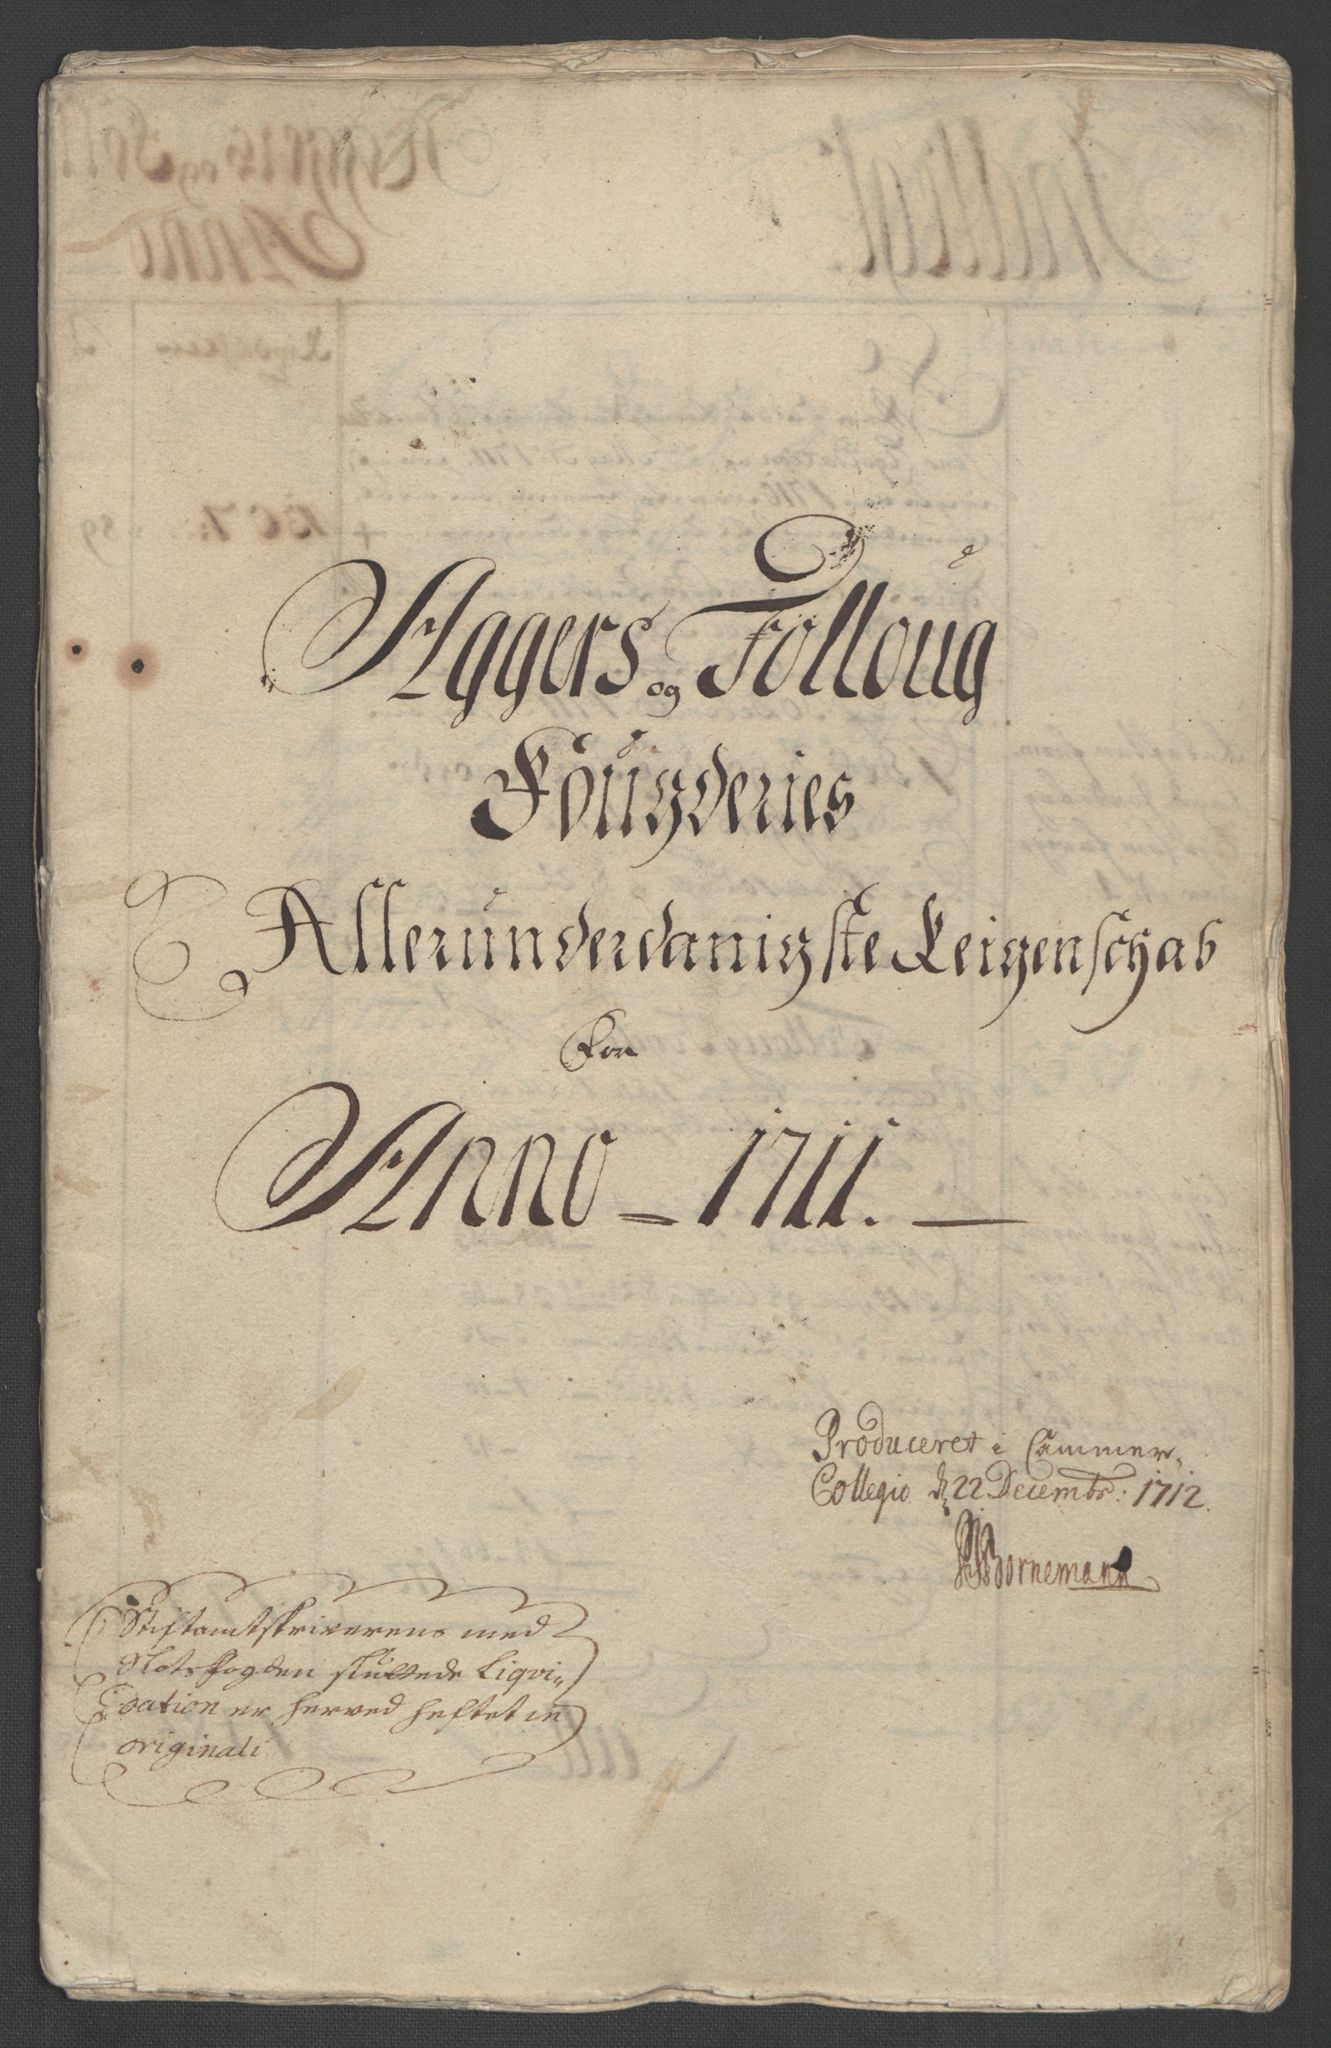 Aggers og Folloug
Fougderies
Allerunderdanigste Reigenschab
For
Anno 1711.
Produceret i Cammer-
Collegio d 22 Decembr: 1712.
Bornemann
Stiftamtskriverens med
Slotsfogden sluttede Liqvi-
dation er herved heftet in
originali